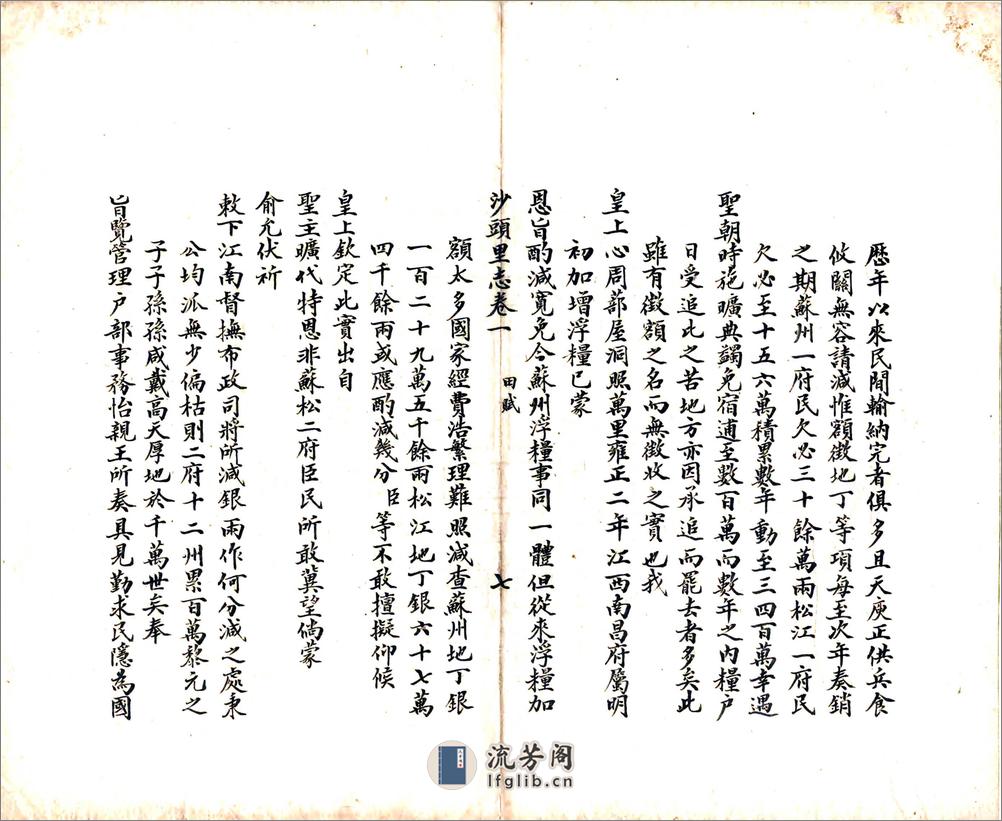 歴年以來民間輸納完者俱多且天庾正供兵食
攸關無容請減惟額徵地丁等項每至次年奏銷
之期蘇州一府民欠必三十餘萬兩松江一府民
欠必至十五六萬積累數年動至三四百萬幸遇
聖朝時施曠典蠲免宿逋至數百萬而數年之内糧户
日受追比之苦地方亦因承追而罷去者多矣此
雖有徵額之名而無徵收之實也我
皇上心周蔀屋洞照萬里雍正二年江西南昌府屬明
初加增浮糧已蒙
恩旨酌減寬免今蘇州浮糧事同一體但從來浮糧加
沙頭里志卷一 田賦 七
額太多國家經費浩繁理難照減查蘇州地丁銀
一百二十九萬五千餘兩松江地丁銀六十七萬
四千餘兩或應酌減幾分臣等不敢擅擬仰候
皇上欽定此實出自
聖主曠代特恩非蘇松二府臣民所敢冀望倘蒙
俞允伏祈
敕下江南督撫布政司將所減銀兩作何分減之處秉
公均派無少偏枯則二府十二州累百萬黎元之
子子孫孫咸戴高天厚地於千萬世矣奉
旨覽管理户部事務怡親王所奏具見勤求民隱為國
流芳阁
lfglib.cn